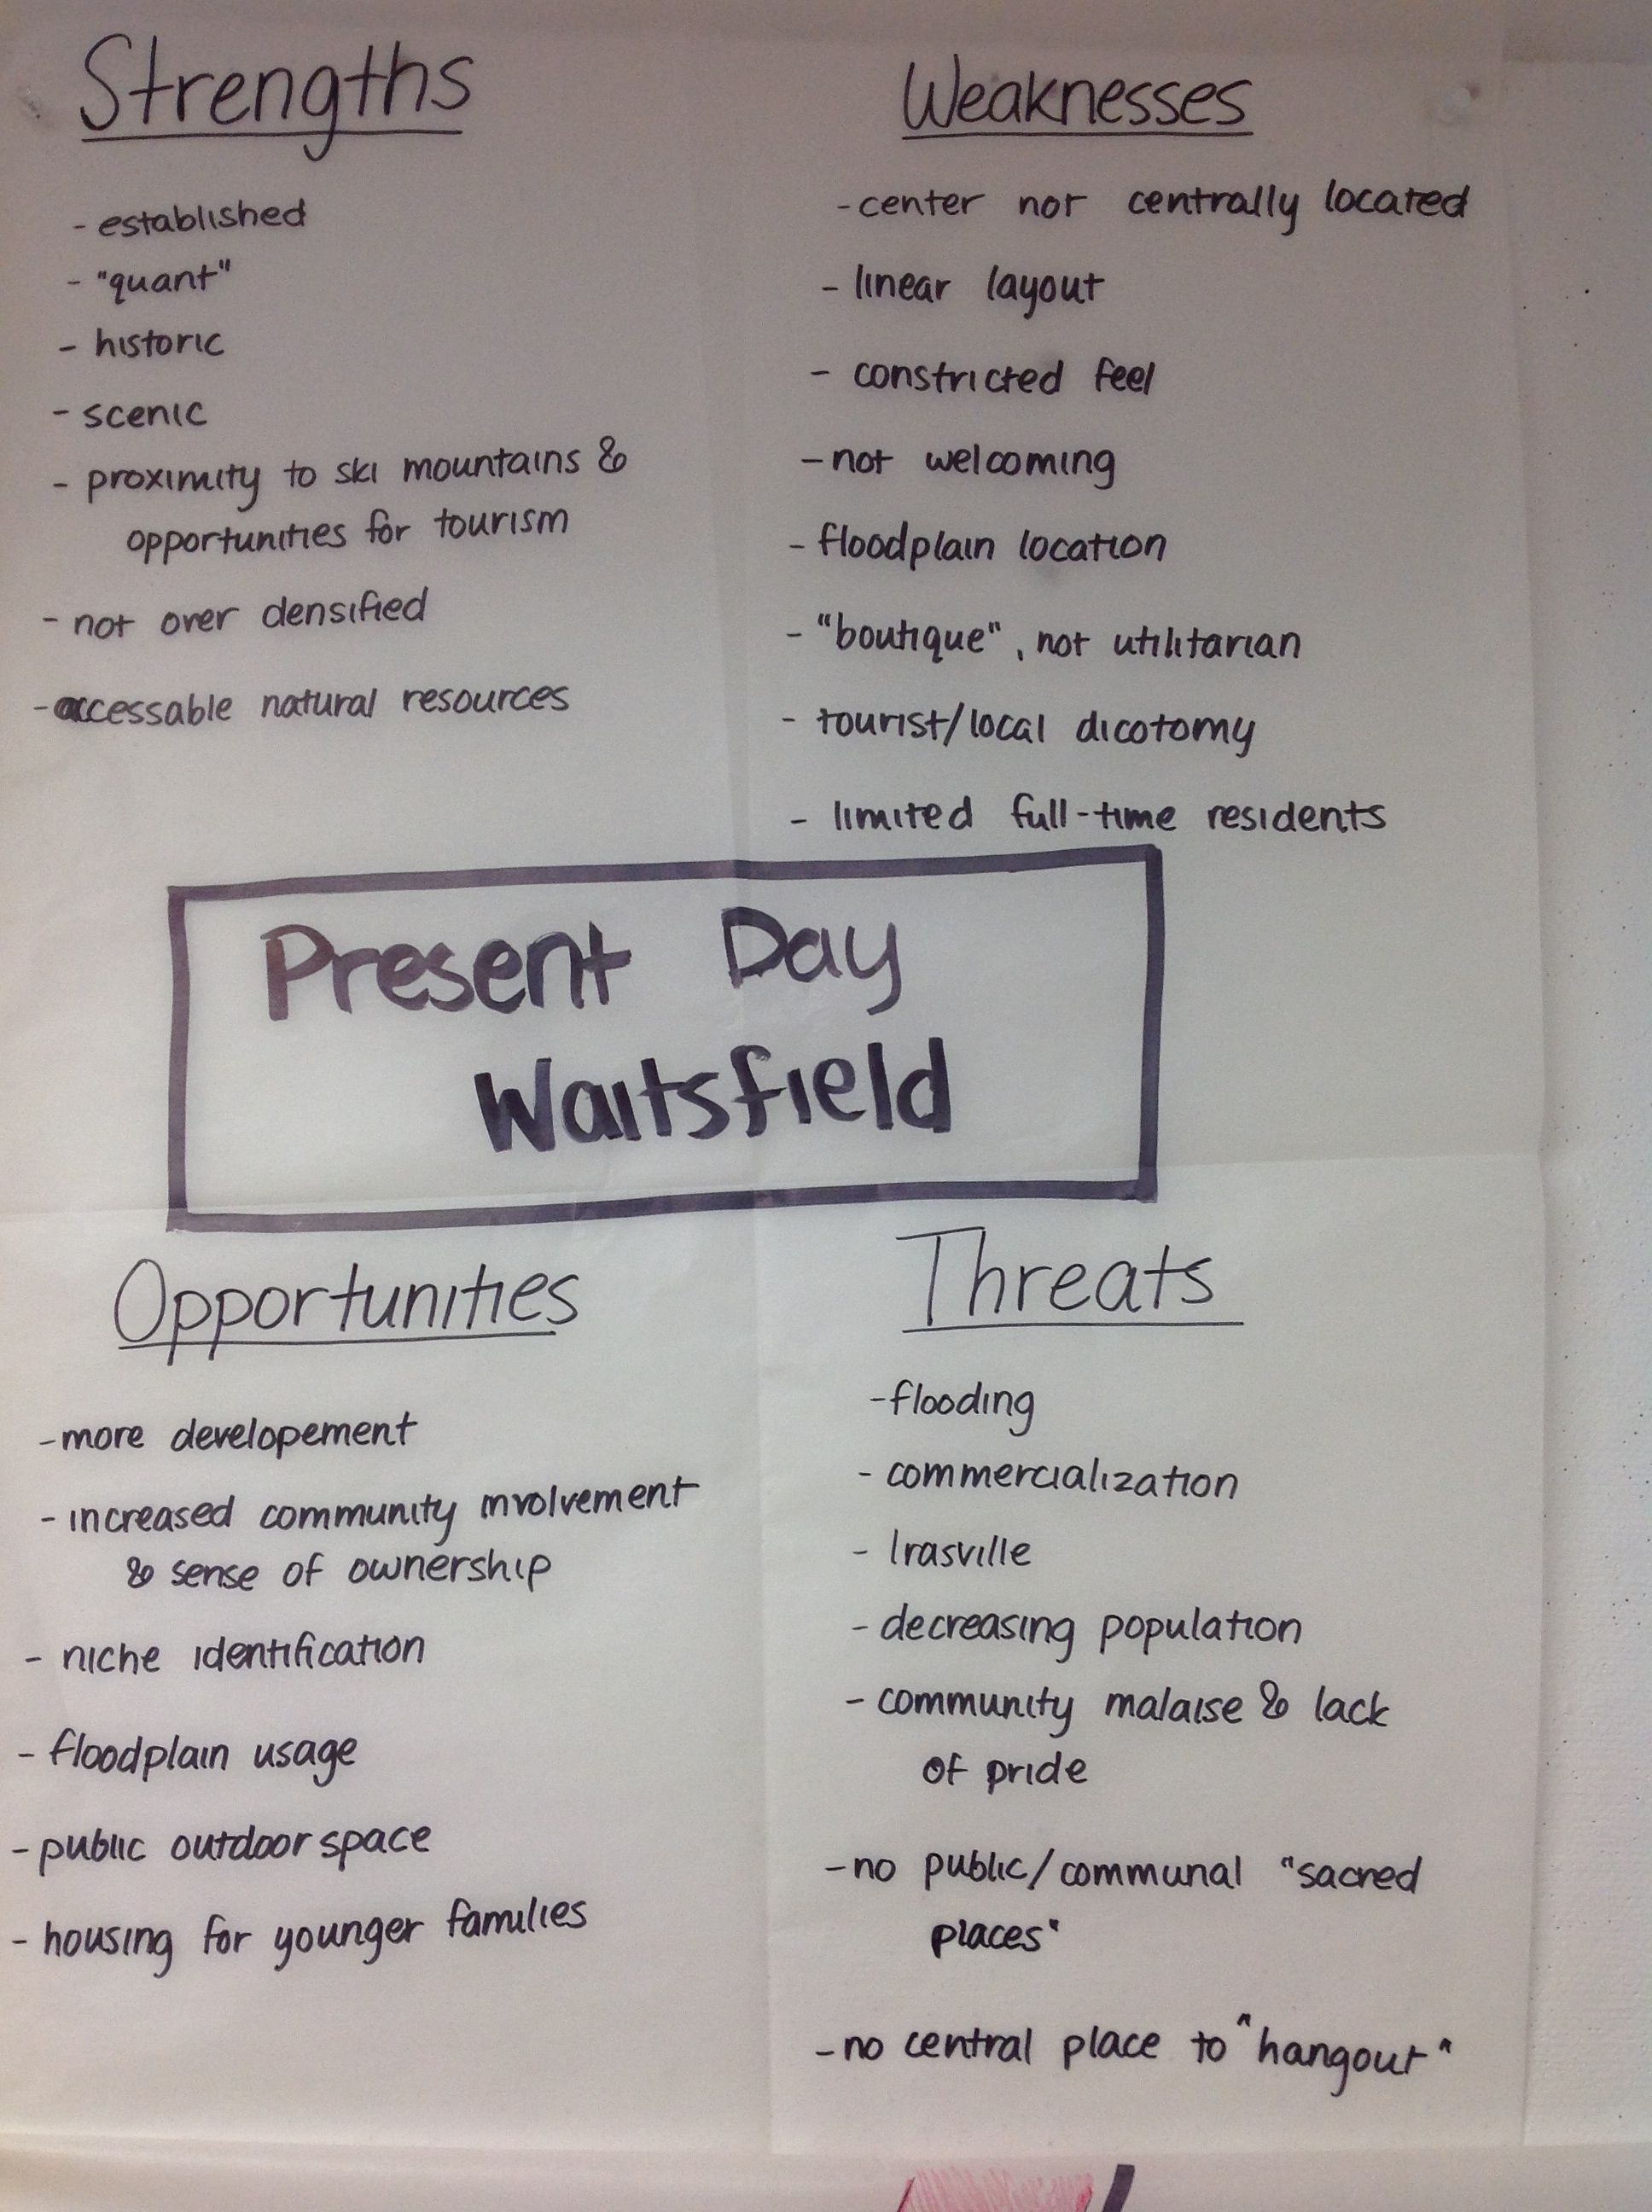 Strengths
- established
- "quant"
- historic
- scenic
- proximity to ski mountains &
opportunities for tourism
- not over densified
- accessable natural resources
Weaknesses
- center not centrally located
- linear layout
- constricted feel
- not welcoming
- floodplain location
- "boutique", not utilitarian
- tourist/local dicotomy
- limited full-time residents
Present Day
Waitsfield
Opportunities
- more developement
- increased community involvement
& sense of ownership
- niche identification
- floodplain usage
- public outdoor space
- housing for younger families
Threats
- flooding
- commercialization
- Irasville
- decreasing population
- community malaise & lack
of pride
- no public/communal "sacred
places"
- no central place to "hangout"